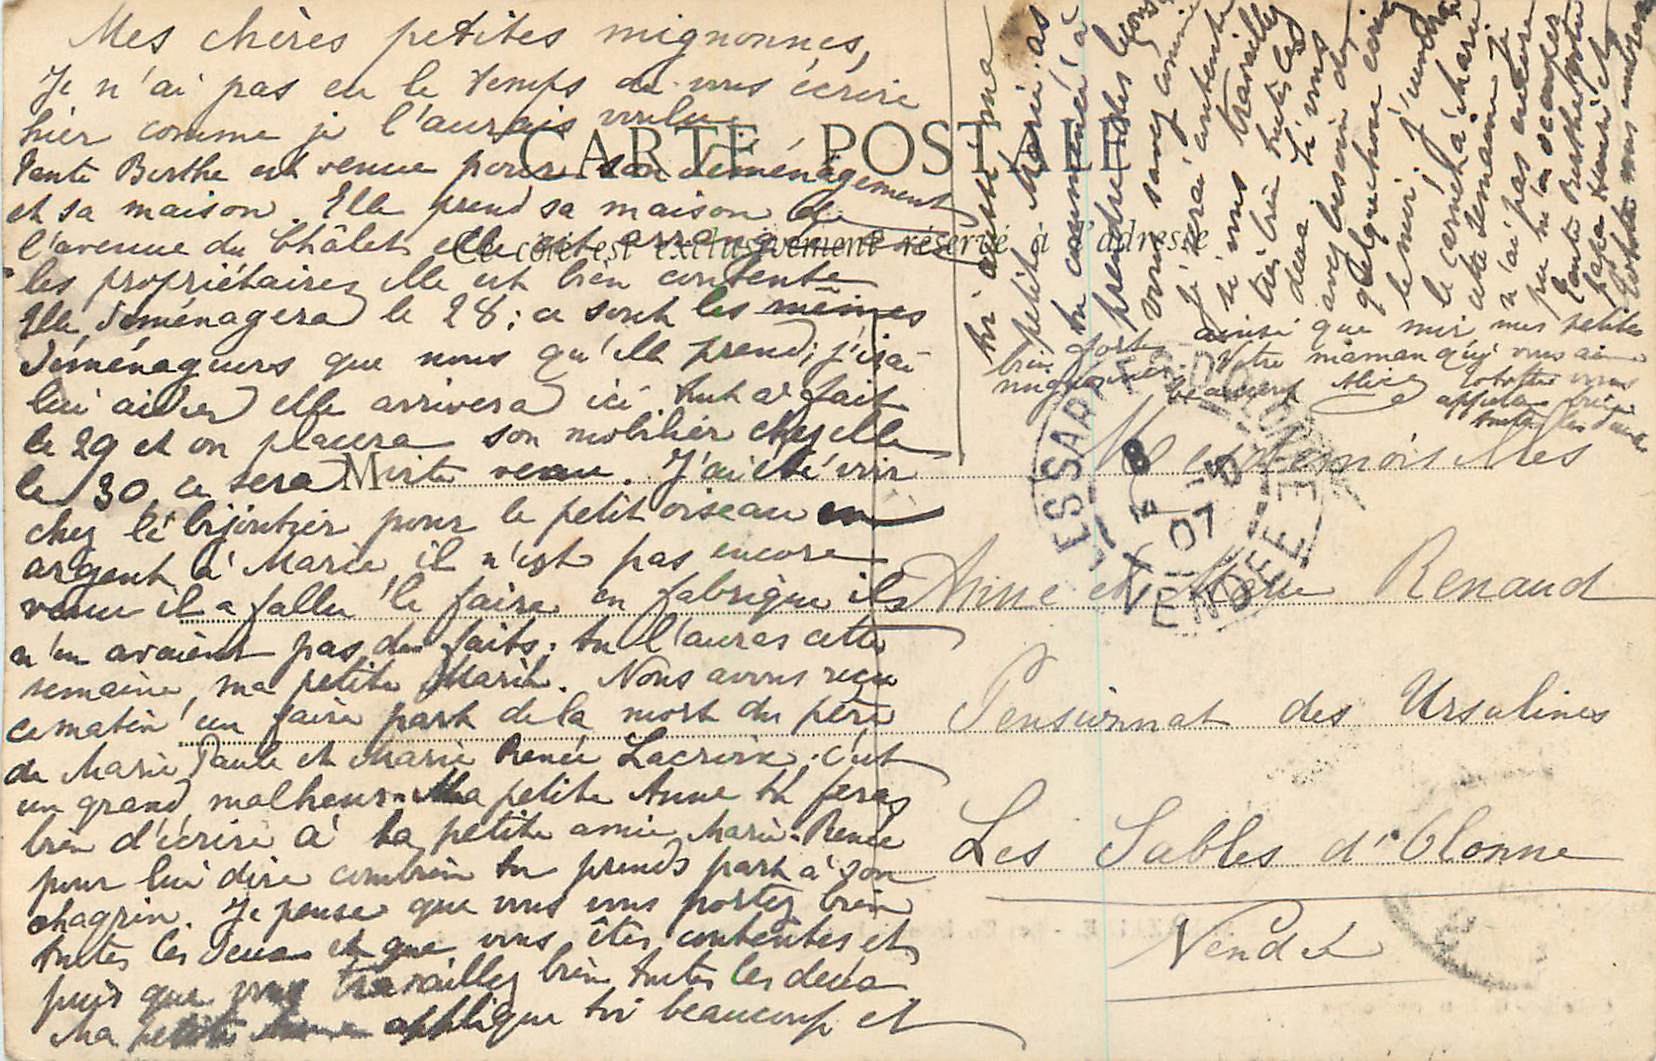 Mes chères petites mignonnes,
Je n'ai pas eu le temps de vous écrire
hier comme je l'aurais voulu
Tante Berthe est venue pour son déménagement
et sa maison. Elle prend sa maison de
l'avenue du Châlet elle est arrangée avec
les propriétaires elle est bien contente
Elle déménagera le 28; ce sont les mêmes
déménageurs que nous qu'elle prend; j'irai
lui aider elle arrivera ici tout à fait
le 29 et on placera son mobilier chez elle
le 30, ce sera vite venu. J'ai été voir
chez le bijoutier pour le petit oiseau en
argent à Marie, il n'est pas encore
venu il a fallu le faire en fabrique ils
n'en avaient pas de faits; tu l'auras cette
semaine, ma petite Marie. Nous avons reçu
ce matin un faire part de la mort du père
de Marie Paule et Marie Renée Lacroix. c'est
un grand malheur. Ma petite Anne tu feras
bien d'écrire à ta petite amie Marie-Renée
pour lui dire combien tu prends part à son
chagrin. Je pense que vous vous portez bien
toutes les deux et que vous êtes contentes et
puis que vous travaillez bien toutes les deux
Ma petite Anne applique toi beaucoup et
toi aussi ma
petite Marie as
tu commencé à
prendre des leçons
vous savez comme
je serai contente
si vous travaillez
très bien toutes les
deux Si vous
avez besoin de
quelque chose écris
le moi; j'enverrai
le carnet à Marie
cette semaine je
n'ai pas encore
pu m'en occuper
Tante Berthe votre
papa Henri et
Tototte vous embrassent
bien fort ainsi que moi mes petites
mignonnes. Votre maman qui vous aime
beaucoup Alice Tototte vous
appelle bien
toutes les deux
CARTE POSTALE
Ce côté est exclusivement réservé à l'adresse
LES SABLES-D'OLONNE
8
07
VENDÉE
M esdemoiselles
Anne et Marie Renaud
Pensionnat des Ursulines
Les Sables d'Olonne
Vendée